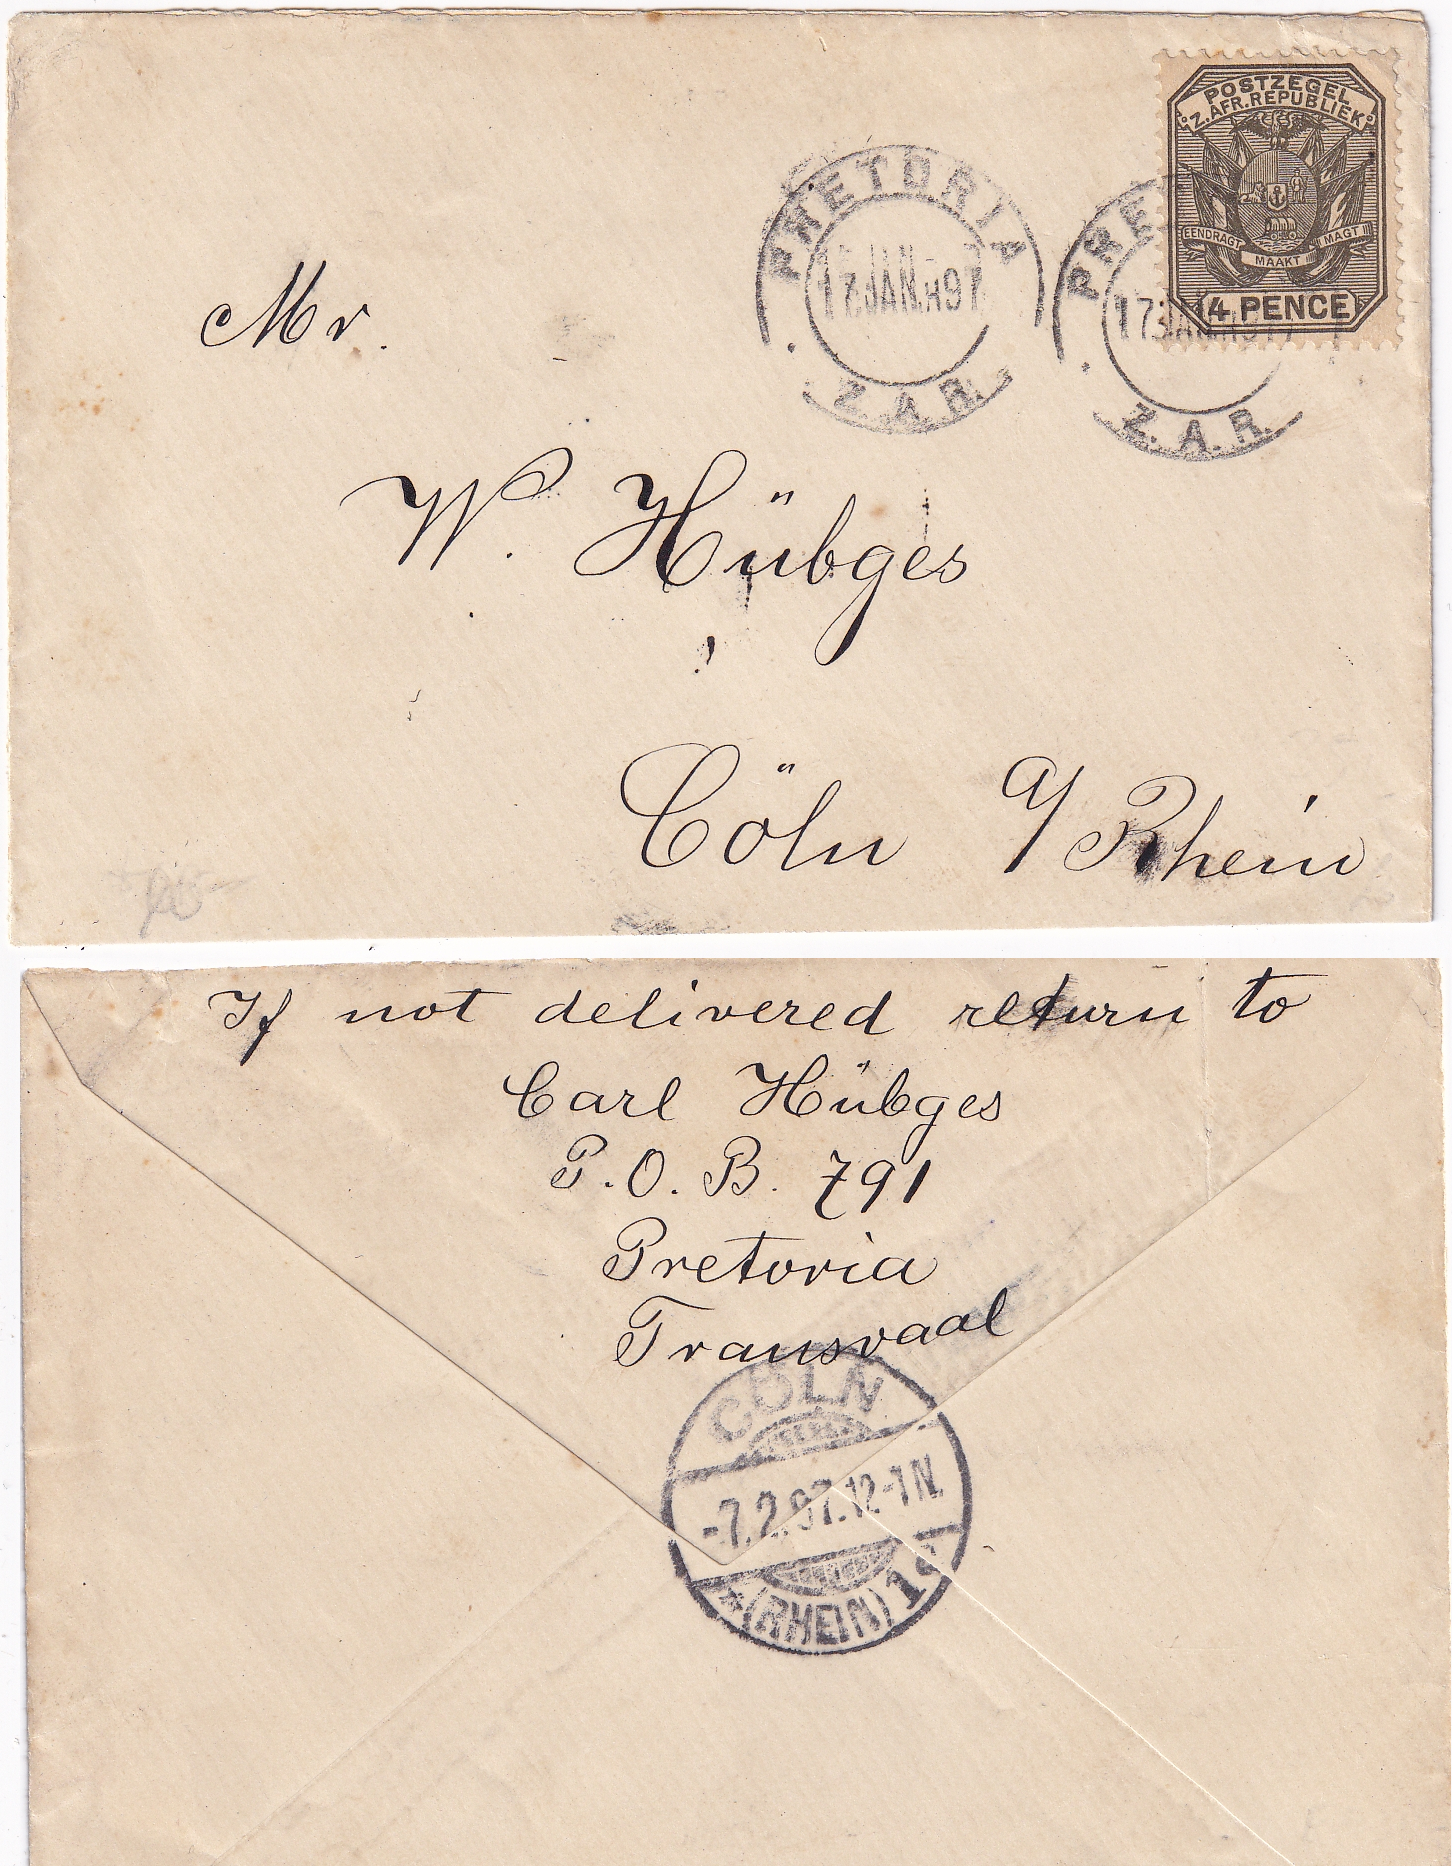 POSTZEGEL
Z. AFR. REPUBLIEK
EENDRAGT MAAKT MAGT
4 PENCE
PRETORIA
17 JAN. 97
Z.A.R.
PRE
17 JAN
Z.A.R.
Mr.
W. Hübges
Cöln a/Rhein
If not delivered return to
Carl Hübges
P.O.B. 791
Pretoria
Transvaal
CÖLN
-7.2.97.12-1N.
*(RHEIN) 1